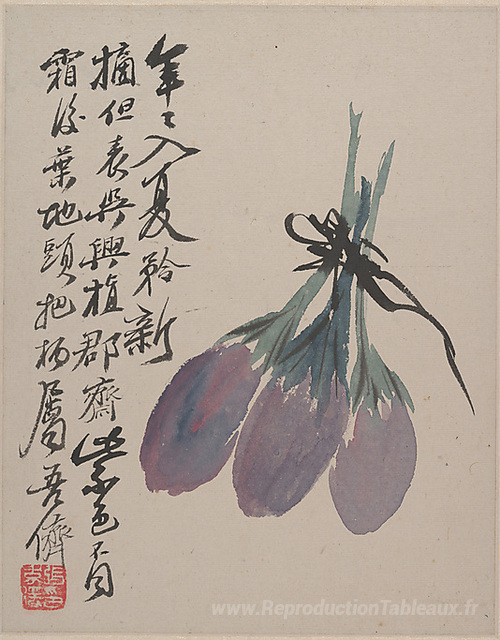 年〻入夏矜新
摘但表與興植郡齋紫色不同
霜後葉地頭把柄屬吾儕
www.ReproductionTableaux.fr